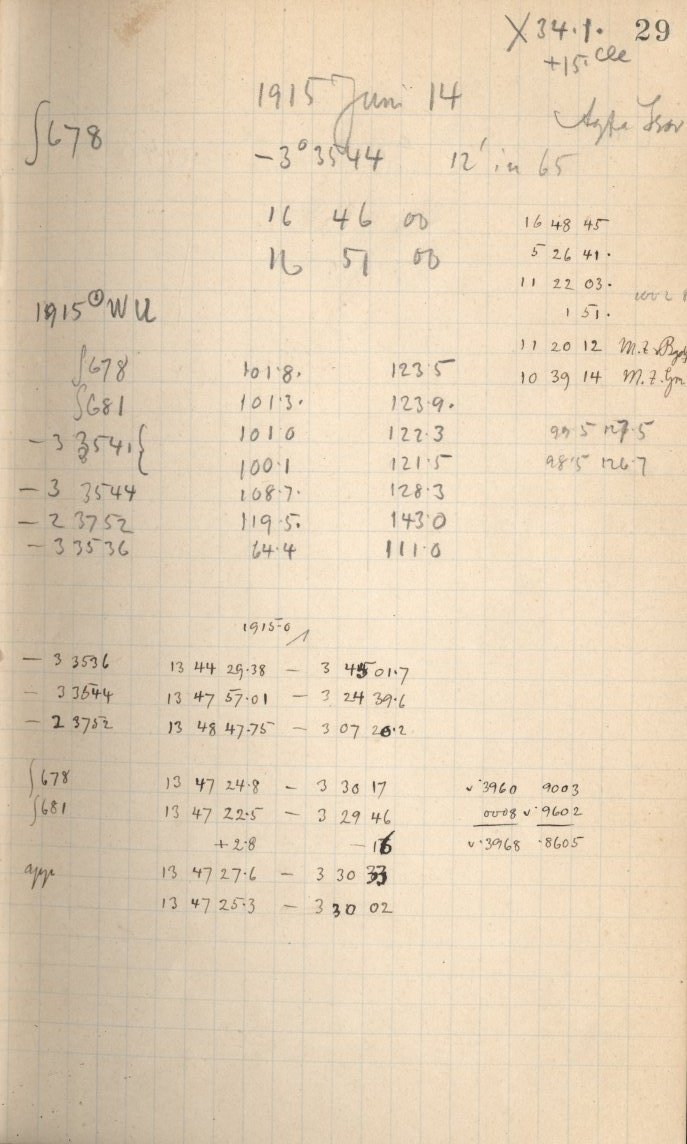 X 34.1. 29
+15.
1915 Juni 14
∫678
−3° 3544 12' in 65
16 46 00
16 51 00
16 48 45
5 26 41.
11 22 03.
1 51.
1915 WU
11 20 12 M.Z.
10 39 14 M.Z.
∫678 101.8. 123.5
∫681 101.3. 123.9.
−3 3541 { 101.0 122.3 99.5 127.5
100.1 121.5 98.5 126.7
−3 3544 108.7. 128.3
−2 3752 119.5. 143.0
−3 3536 64.4 111.0
1915.0
−3 3536 13 44 29.38 − 3 45 01.7
−3 3544 13 47 57.01 − 3 24 39.6
−2 3752 13 48 47.75 − 3 07 20.2
∫678 13 47 24.8 − 3 30 17 3960 9003
∫681 13 47 22.5 − 3 29 46 0008 9602
+2.8 −16 3968 .8605
app 13 47 27.6 − 3 30 33
13 47 25.3 − 3 30 02